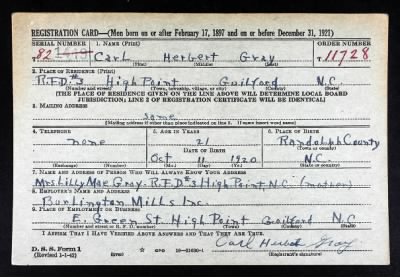 REGISTRATION CARD—(Men born on or after February 17, 1897 and on or before December 31, 1921)
SERIAL NUMBER 1. NAME (Print) ORDER NUMBER
Carl Herbert Gray T 11728
(First) (Middle) (Last)
2. PLACE OF RESIDENCE (Print)
R.F.D.#3 High Point Guilford N.C.
(Number and street) (Town, township, village, or city) (County) (State)
[THE PLACE OF RESIDENCE GIVEN ON THE LINE ABOVE WILL DETERMINE LOCAL BOARD
JURISDICTION; LINE 2 OF REGISTRATION CERTIFICATE WILL BE IDENTICAL]
3. MAILING ADDRESS
same
[Mailing address if other than place indicated on line 2. If same insert word same]
4. TELEPHONE 5. AGE IN YEARS 6. PLACE OF BIRTH
none 21 Randolph County
DATE OF BIRTH (Town or county)
Oct 11 1920 N.C.
(Exchange) (Number) (Mo.) (Day) (Yr.) (State or country)
7. NAME AND ADDRESS OF PERSON WHO WILL ALWAYS KNOW YOUR ADDRESS
Mrs. Lilly Mae Gray. R.F.D.#3 High Point, N.C. (mother)
8. EMPLOYER'S NAME AND ADDRESS
Burlington Mills Inc.
9. PLACE OF EMPLOYMENT OR BUSINESS
E. Green St. High Point Guilford N.C
(Number and street or R. F. D. number) (Town) (County) (State)
I AFFIRM THAT I HAVE VERIFIED ABOVE ANSWERS AND THAT THEY ARE TRUE.
D. S. S. Form 1 GPO 16—21630-1 Carl Herbert Gray
(Revised 1-1-42) (Registrant's signature)